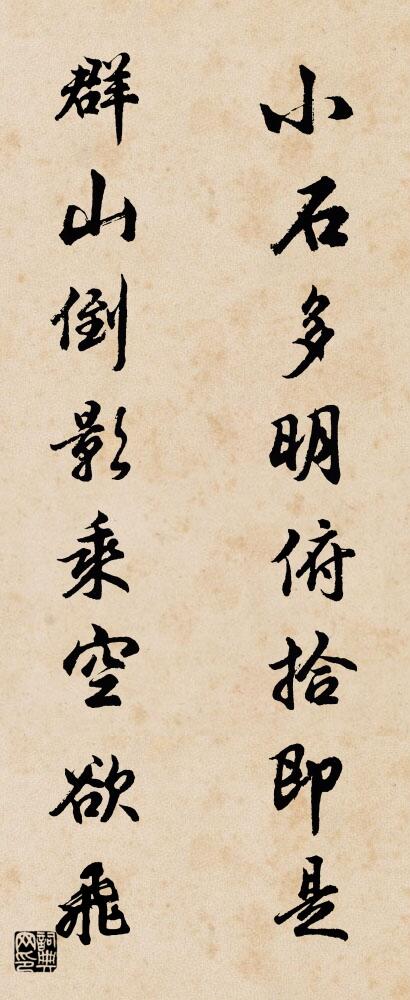 小石多明俯拾即是
群山倒影乘空欲飛
詞典网印